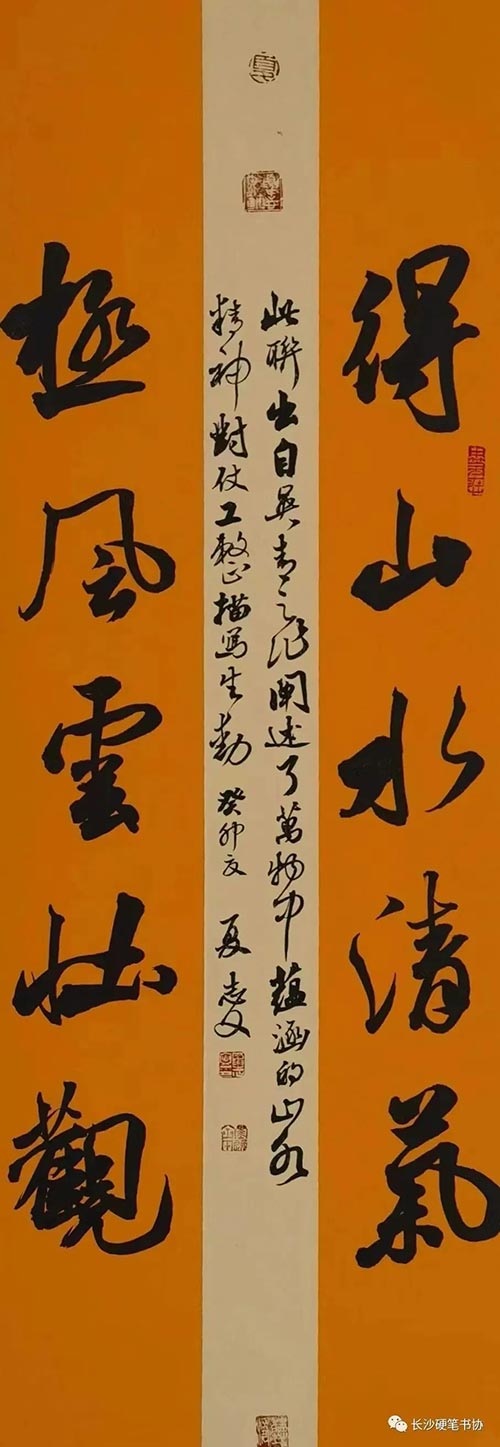 得山水清氣
此聯出自吳青之作闡述了萬物中蘊涵的山水
精神對仗工整描寫生動 癸卯夏 夏
極風雲壯觀
长沙硬笔书协